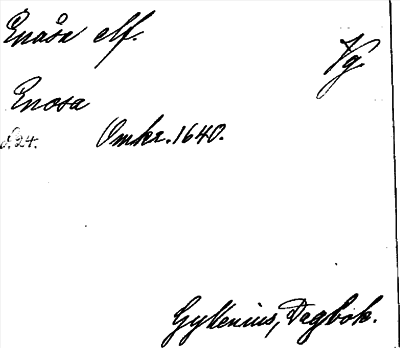 Enåsa elf. Vg
Enosa
s. 24. Omkr. 1640.
Gyllenius, Dagbok.